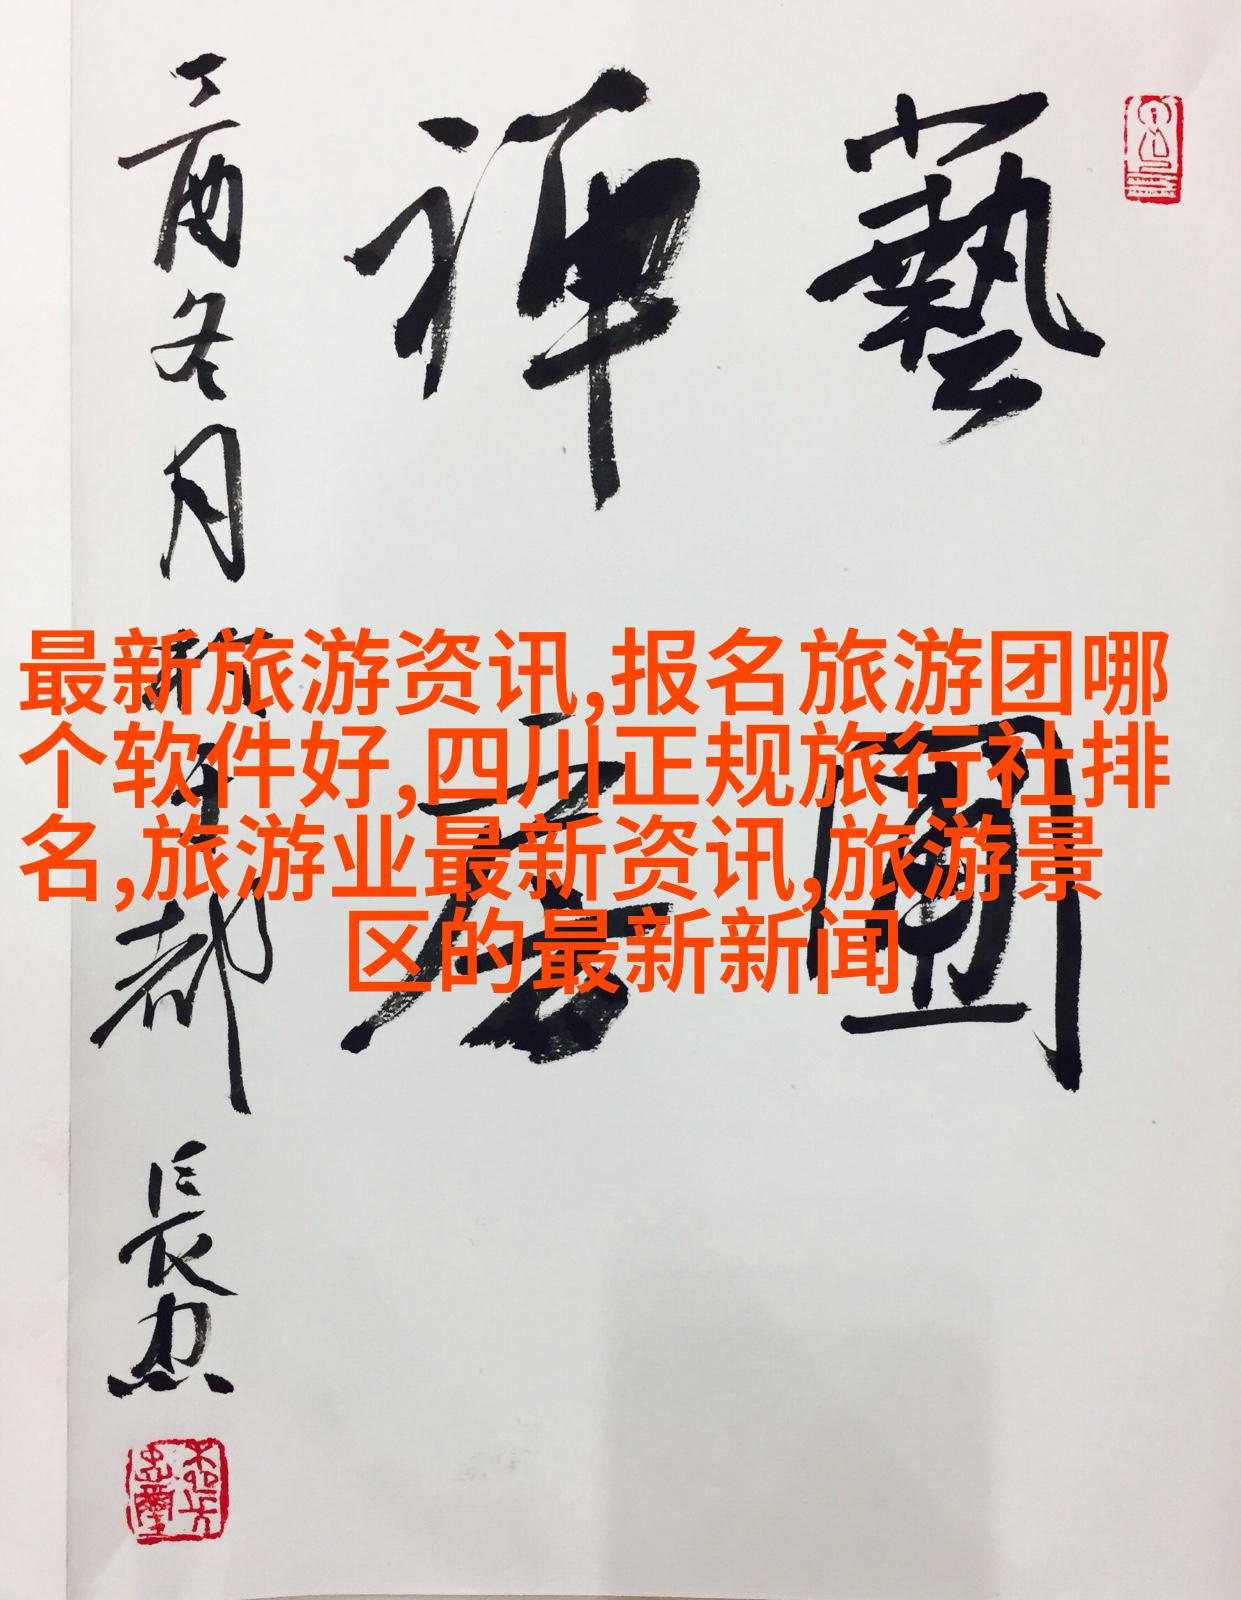 最新旅游资讯,报名旅游团哪
个软件好,四川正规旅行社排
名,旅游业最新资讯,旅游景
区的最新新闻
藝
禪
丁酉冬月 都 長忠